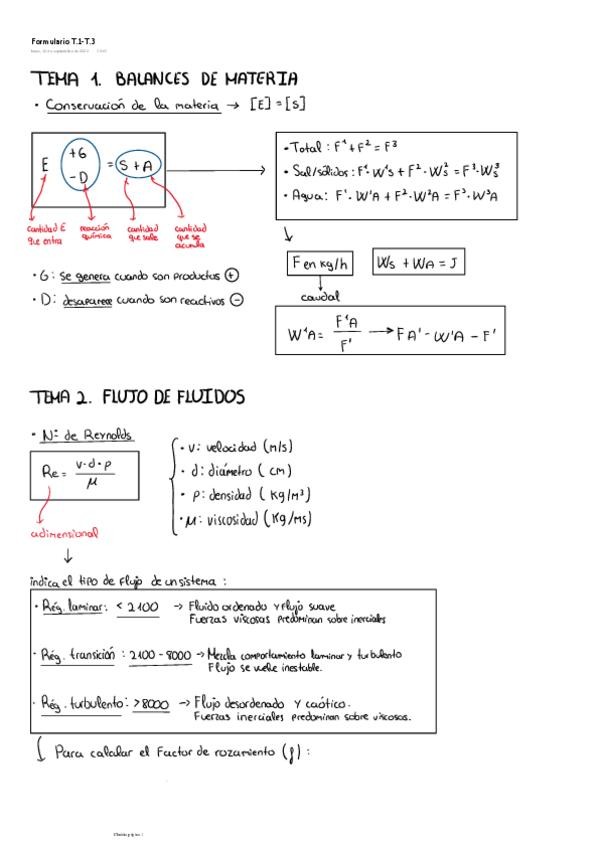 Formulario T.1-T.3
TEMA 1. BALANCES DE MATERIA
· Conservación de la materia → [E] = [S]
E +G -D = S + A
cantidad E que entra
reacción química
cantidad que sale
cantidad que se acumula
· G: se genera cuando son productos ⊕
· D: desaparece cuando son reactivos ⊖
· Total: F¹ + F² = F³
· Sal/sólidos: F¹· W¹s + F² · W²s = F³·W³s
· Agua: F¹· W¹A + F² · W²A = F³· W³A
F en kg/h
Ws + WA = 1
caudal
W¹A = F¹A / F¹ → FA¹ - W¹A - F¹
TEMA 2. FLUJO DE FLUIDOS
· Nº de Reynolds
Re = v·d·ρ / μ
adimensional
· v: velocidad (m/s)
· d: diámetro (cm)
· ρ: densidad (kg/m³)
· μ: viscosidad (kg/ms)
indica el tipo de flujo de un sistema :
· Rég. laminar: < 2100 → Fluido ordenado y flujo suave
Fuerzas viscosas predominan sobre inerciales
· Rég. transición : 2100 - 8000 → Mezcla comportamiento laminar y turbulento
Flujo se vuelve inestable.
· Rég. turbulento: > 8000 → Flujo desordenado y caótico.
Fuerzas inerciales predominan sobre viscosas.
Para calcular el Factor de rozamiento (f) :